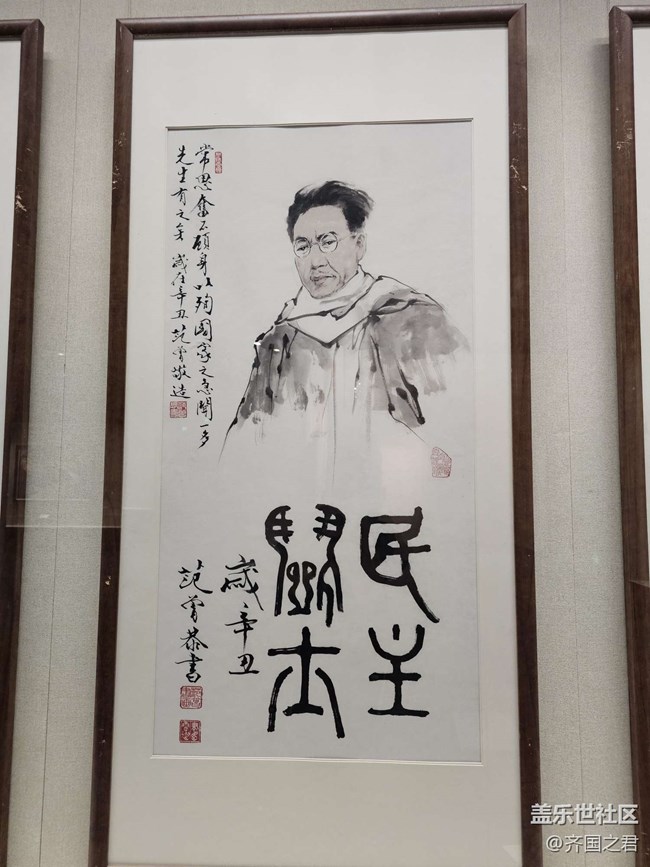 常思奮不顧身以殉國家之急聞一多
先生有之矣 歲在辛丑 范曾敬造
民主
鬭士
歲辛丑
范曾恭書
盖乐世社区
@齐国之君